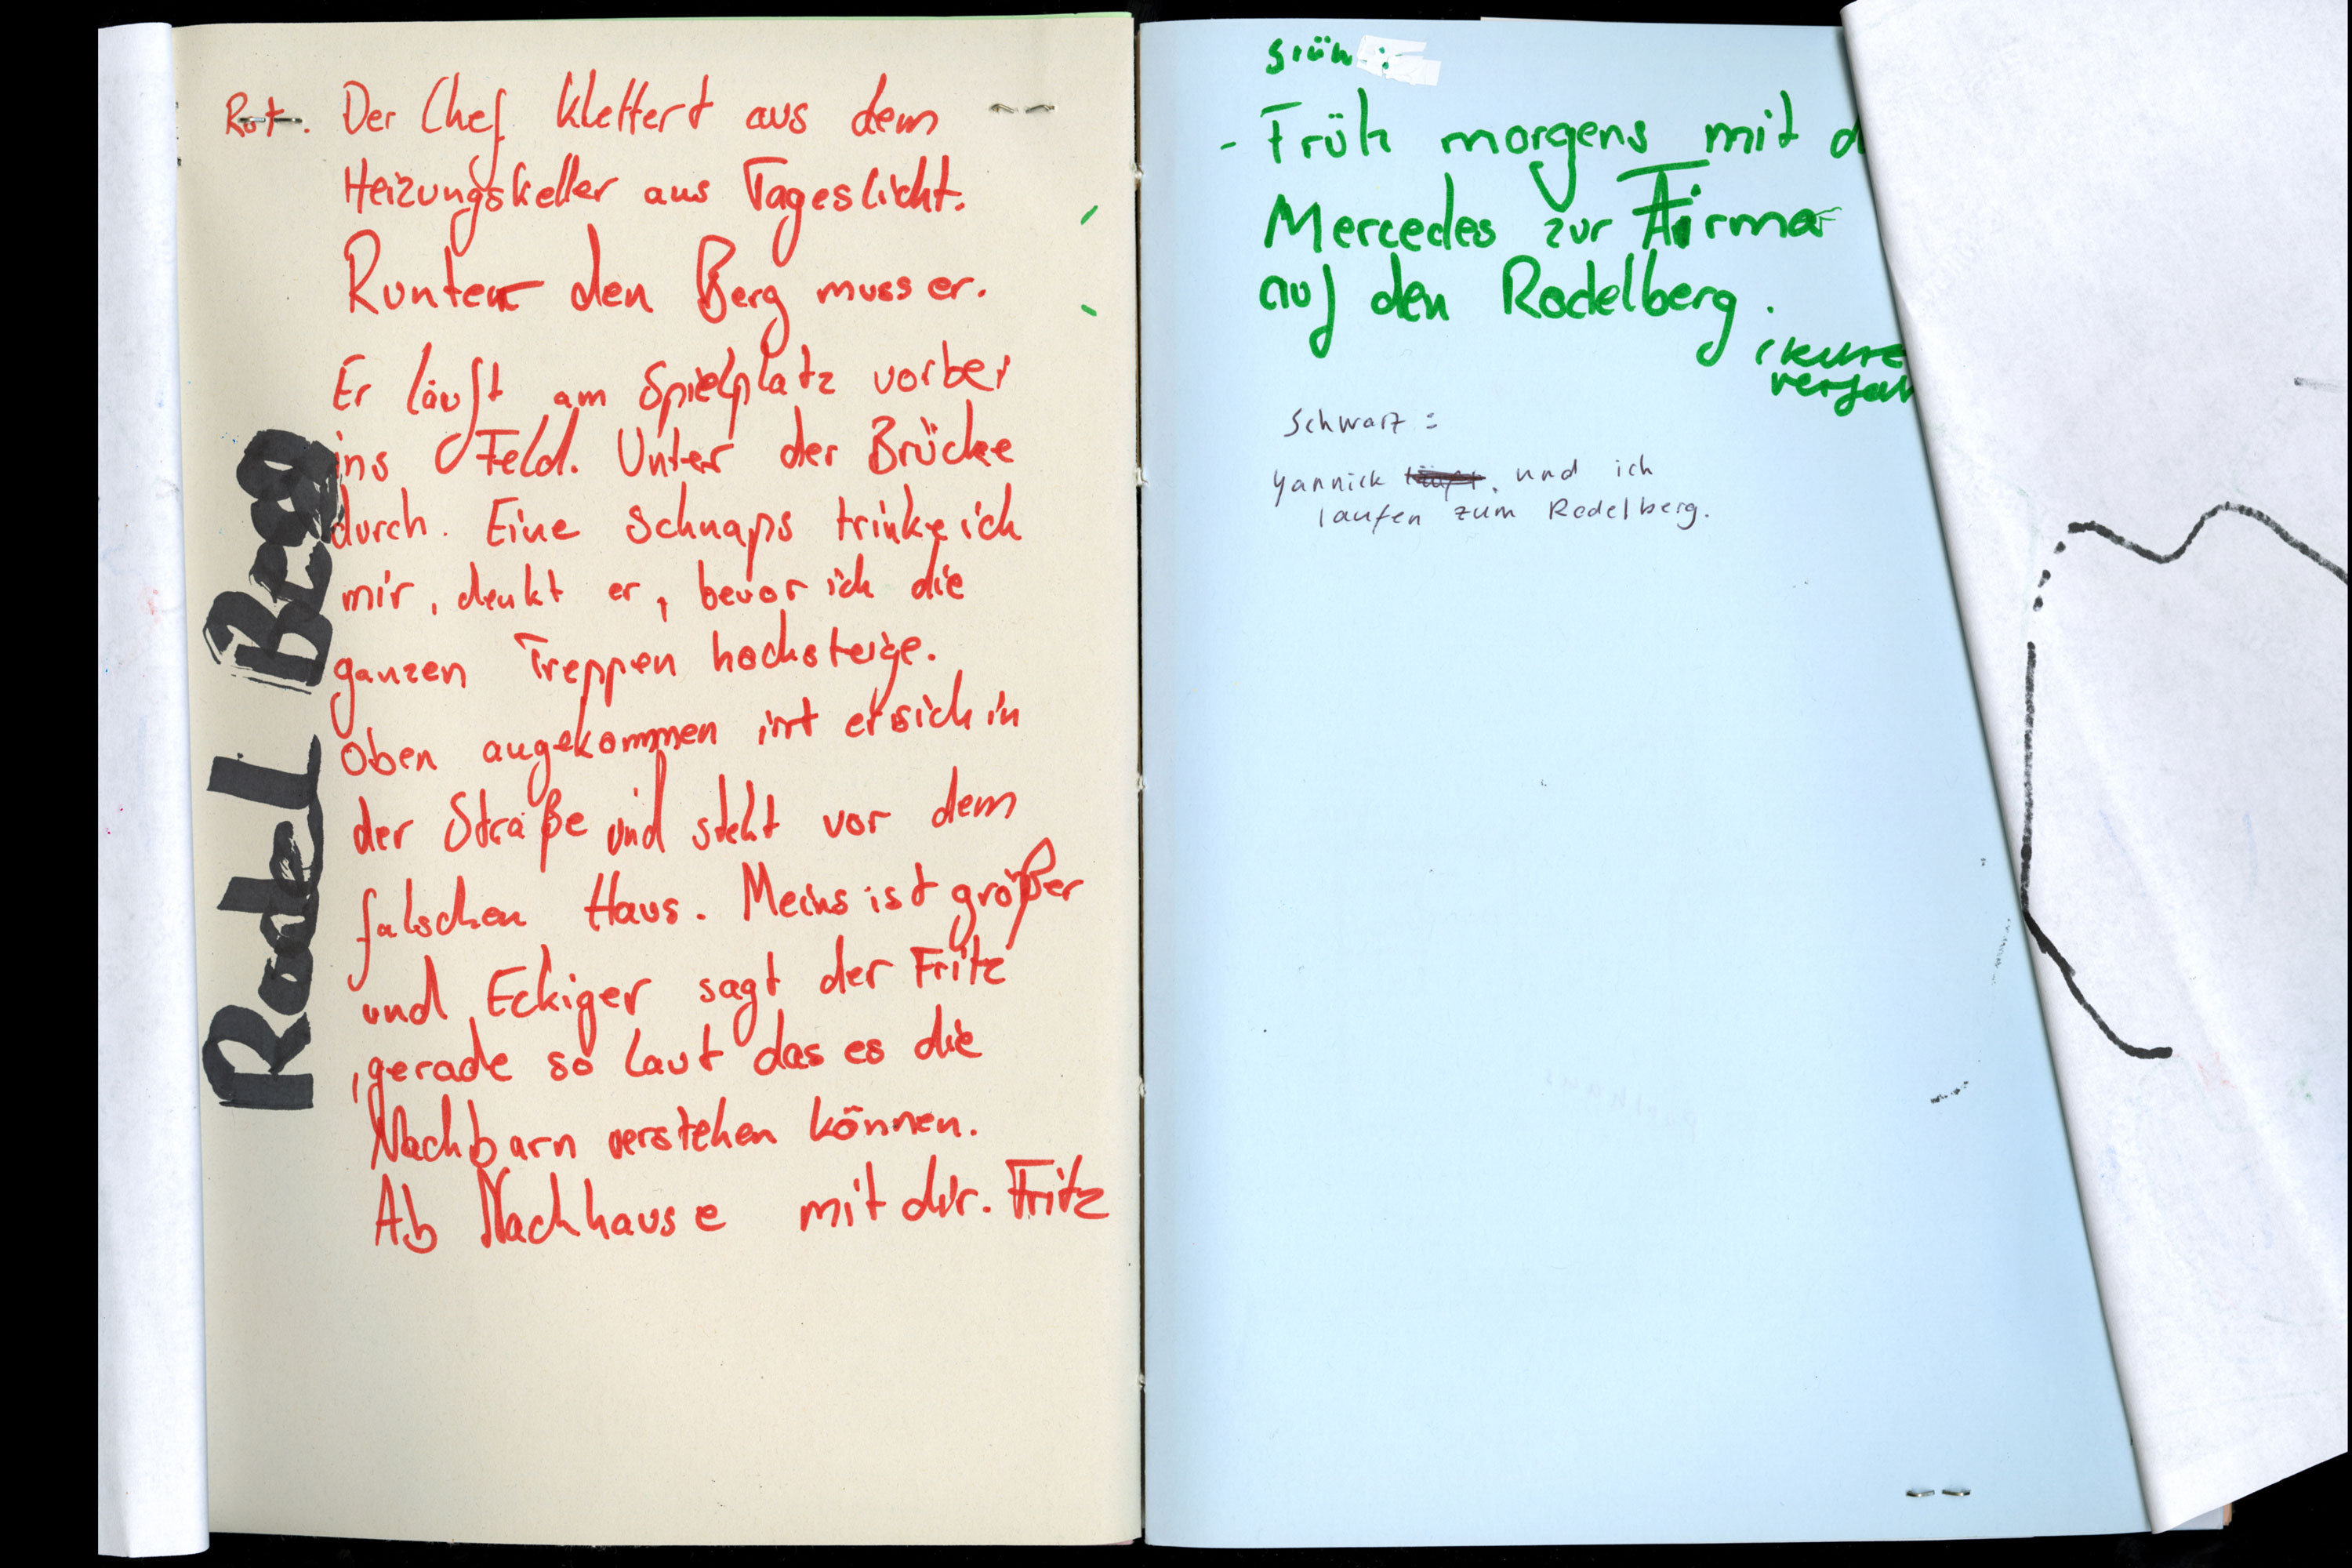 Rot. Der Chef klettert aus dem
Heizungskeller aus Tageslicht.
Runter den Berg muss er.
Er läuft am Spielplatz vorbei
ins Feld. Unter der Brücke
durch. Eine Schnaps trinke ich
mir, denkt er, bevor ich die
ganzen Treppen hochsteige.
Oben angekommen irrt er sich in
der Straße und steht vor dem
falschen Haus. Meins ist größer
und Eckiger sagt der Fritz
, gerade so laut das es die
Nachbarn verstehen können.
Ab Nachhause mit dir. Fritz
Rodel Berg
grün :
- Früh morgens mit d
Mercedes zur Firma
auf den Rodelberg.
(kurz
verfah
Schwarz :
Yannick und ich
laufen zum Rodelberg.